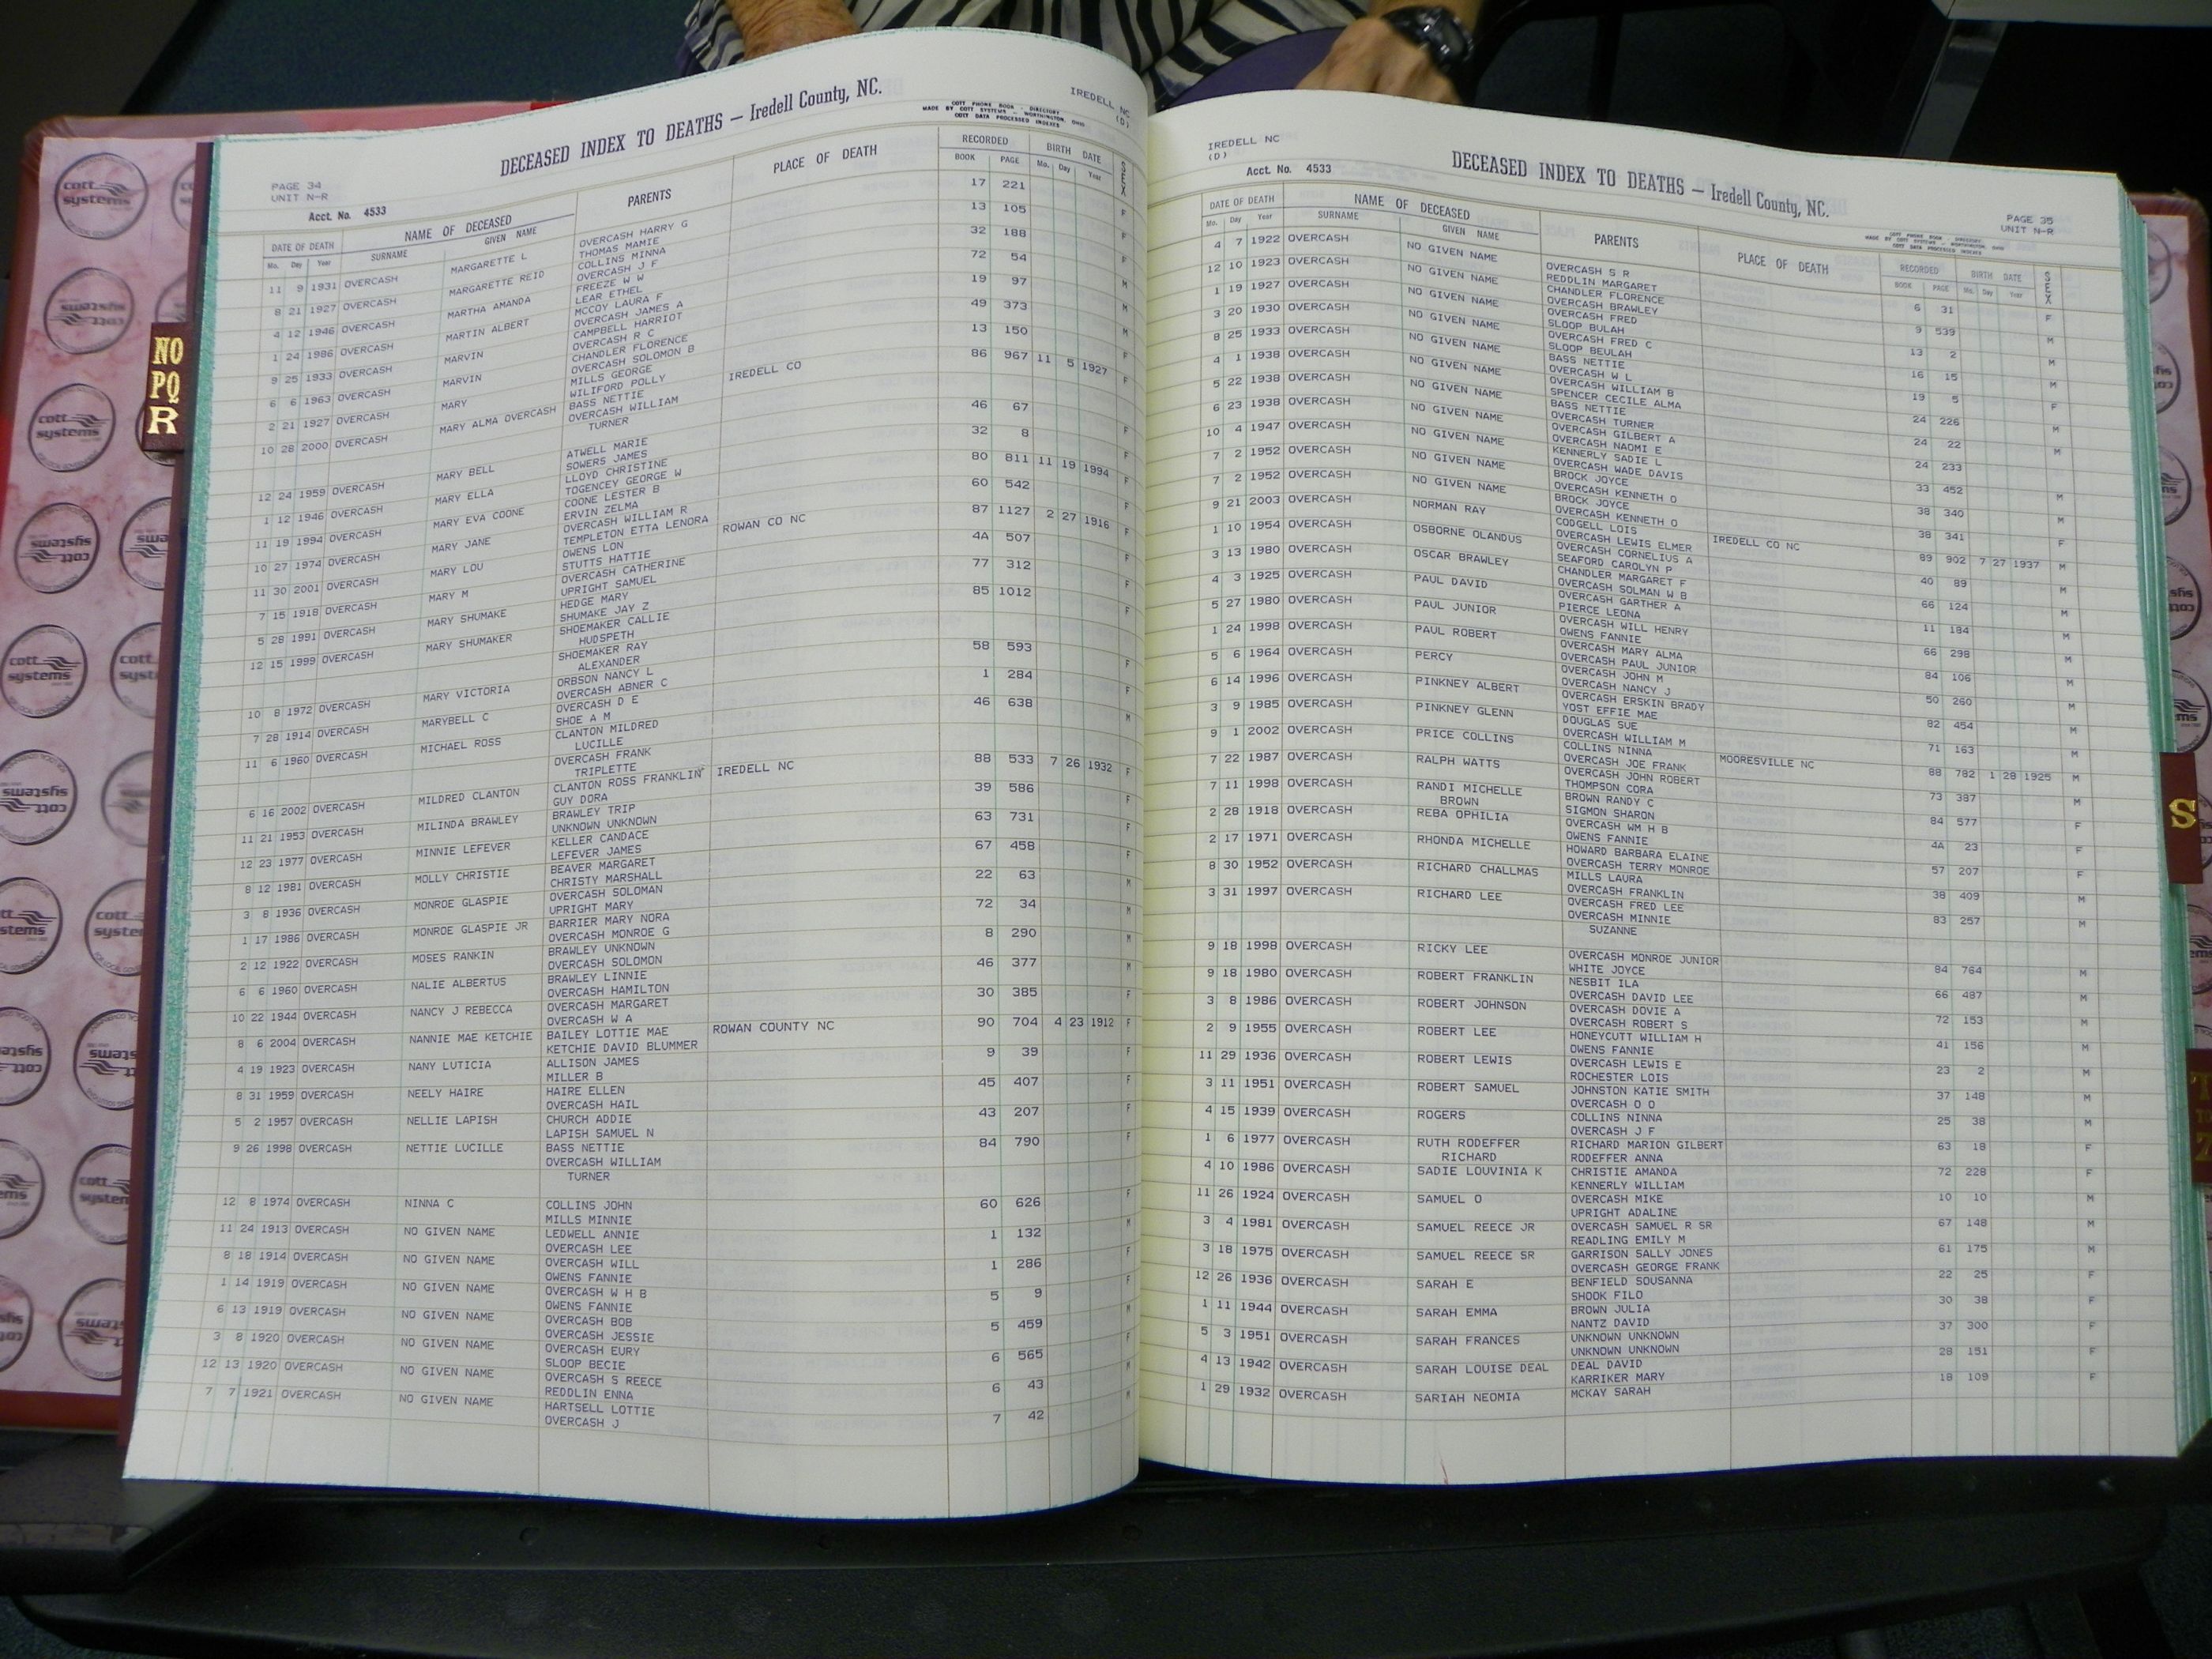 NO
PQ
R
cott systems
IREDELL NC
(D)
DECEASED INDEX TO DEATHS — Iredell County, NC.
COTT PHONE BOOK - DIRECTORY
MADE BY COTT SYSTEMS - WORTHINGTON, OHIO
COTT DATA PROCESSED INDEXES
PAGE 34
UNIT N-R
Acct. No. 4533
DATE OF DEATH NAME OF DECEASED PARENTS PLACE OF DEATH RECORDED BIRTH DATE SEX
Mo. Day Year SURNAME GIVEN NAME BOOK PAGE Mo. Day Year
11 9 1931 OVERCASH MARGARETTE L OVERCASH HARRY G 17 221 F
THOMAS MAMIE
8 21 1927 OVERCASH MARGARETTE REID COLLINS MINNA 13 105 F
OVERCASH J F
4 12 1946 OVERCASH MARTHA AMANDA FREEZE W W 32 188 F
LEAR ETHEL
1 24 1986 OVERCASH MARTIN ALBERT MCCOY LAURA F 72 54 M
OVERCASH JAMES A
9 25 1933 OVERCASH MARVIN CAMPBELL HARRIOT 19 97 M
OVERCASH R C
6 6 1963 OVERCASH MARVIN CHANDLER FLORENCE 49 373 M
OVERCASH SOLOMON B
2 21 1927 OVERCASH MARY MILLS GEORGE 13 150 F
WILIFORD POLLY
10 28 2000 OVERCASH MARY ALMA OVERCASH BASS NETTIE IREDELL CO 86 967 11 5 1927 F
OVERCASH WILLIAM
TURNER
12 24 1959 OVERCASH MARY BELL ATWELL MARIE 46 67 F
SOWERS JAMES
1 12 1946 OVERCASH MARY ELLA LLOYD CHRISTINE 32 8 F
TOGENCEY GEORGE W
11 19 1994 OVERCASH MARY EVA COONE COONE LESTER B 80 811 11 19 1994 F
ERVIN ZELMA
10 27 1974 OVERCASH MARY JANE OVERCASH WILLIAM R 60 542 F
TEMPLETON ETTA LENORA
11 30 2001 OVERCASH MARY LOU OWENS LON ROWAN CO NC 87 1127 2 27 1916 F
STUTTS HATTIE
7 15 1918 OVERCASH MARY M OVERCASH CATHERINE 4A 507 F
UPRIGHT SAMUEL
5 28 1991 OVERCASH MARY SHUMAKE HEDGE MARY 77 312 F
SHUMAKE JAY Z
12 15 1999 OVERCASH MARY SHUMAKER SHOEMAKER CALLIE 85 1012 F
HUDSPETH
SHOEMAKER RAY
ALEXANDER
10 8 1972 OVERCASH MARY VICTORIA ORBSON NANCY L 58 593 F
OVERCASH ABNER C
7 28 1914 OVERCASH MARYBELL C OVERCASH D E 1 284 F
SHOE A M
11 6 1960 OVERCASH MICHAEL ROSS CLANTON MILDRED 46 638 M
LUCILLE
OVERCASH FRANK
TRIPLETTE
6 16 2002 OVERCASH MILDRED CLANTON CLANTON ROSS FRANKLIN IREDELL NC 88 533 7 26 1932 F
GUY DORA
11 21 1953 OVERCASH MILINDA BRAWLEY BRAWLEY TRIP 39 586 F
UNKNOWN UNKNOWN
12 23 1977 OVERCASH MINNIE LEFEVER KELLER CANDACE 63 731 F
LEFEVER JAMES
8 12 1981 OVERCASH MOLLY CHRISTIE BEAVER MARGARET 67 458 F
CHRISTY MARSHALL
3 8 1936 OVERCASH MONROE GLASPIE OVERCASH SOLOMAN 22 63 M
UPRIGHT MARY
1 17 1986 OVERCASH MONROE GLASPIE JR BARRIER MARY NORA 72 34 M
OVERCASH MONROE G
2 12 1922 OVERCASH MOSES RANKIN BRAWLEY UNKNOWN 8 290 M
OVERCASH SOLOMON
6 6 1960 OVERCASH NALIE ALBERTUS BRAWLEY LINNIE 46 377 M
OVERCASH HAMILTON
10 22 1944 OVERCASH NANCY J REBECCA OVERCASH MARGARET 30 385 F
OVERCASH W A
8 6 2004 OVERCASH NANNIE MAE KETCHIE BAILEY LOTTIE MAE ROWAN COUNTY NC 90 704 4 23 1912 F
KETCHIE DAVID BLUMMER
4 19 1923 OVERCASH NANY LUTICIA ALLISON JAMES 9 39 F
MILLER B
8 31 1959 OVERCASH NEELY HAIRE HAIRE ELLEN 45 407 F
OVERCASH HAIL
5 2 1957 OVERCASH NELLIE LAPISH CHURCH ADDIE 43 207 F
LAPISH SAMUEL N
9 26 1998 OVERCASH NETTIE LUCILLE BASS NETTIE 84 790 F
OVERCASH WILLIAM
TURNER
12 8 1974 OVERCASH NINNA C COLLINS JOHN 60 626 F
MILLS MINNIE
11 24 1913 OVERCASH NO GIVEN NAME LEDWELL ANNIE 1 132 M
OVERCASH LEE
8 18 1914 OVERCASH NO GIVEN NAME OVERCASH WILL 1 286 F
OWENS FANNIE
1 14 1919 OVERCASH NO GIVEN NAME OVERCASH W H B 5 9 F
OWENS FANNIE
6 13 1919 OVERCASH NO GIVEN NAME OVERCASH BOB 5 459 M
OVERCASH JESSIE
3 8 1920 OVERCASH NO GIVEN NAME OVERCASH EURY 6 565 F
SLOOP BECIE
12 13 1920 OVERCASH NO GIVEN NAME OVERCASH S REECE 6 43 M
REDDLIN ENNA
7 7 1921 OVERCASH NO GIVEN NAME HARTSELL LOTTIE 7 42 M
OVERCASH J
IREDELL NC
(D)
Acct. No. 4533
DECEASED INDEX TO DEATHS — Iredell County, NC.
PAGE 35
UNIT N-R
COTT PHONE BOOK - DIRECTORY
MADE BY COTT SYSTEMS - WORTHINGTON, OHIO
COTT DATA PROCESSED INDEXES
DATE OF DEATH NAME OF DECEASED PARENTS PLACE OF DEATH RECORDED BIRTH DATE SEX
Mo. Day Year SURNAME GIVEN NAME BOOK PAGE Mo. Day Year
4 7 1922 OVERCASH NO GIVEN NAME OVERCASH S R 6 31 F
REDDLIN MARGARET
12 10 1923 OVERCASH NO GIVEN NAME CHANDLER FLORENCE 9 539 M
OVERCASH BRAWLEY
1 19 1927 OVERCASH NO GIVEN NAME OVERCASH FRED 13 2 M
SLOOP BULAH
3 20 1930 OVERCASH NO GIVEN NAME OVERCASH FRED C 16 15 M
SLOOP BEULAH
8 25 1933 OVERCASH NO GIVEN NAME BASS NETTIE 19 5 F
OVERCASH W L
4 1 1938 OVERCASH NO GIVEN NAME OVERCASH WILLIAM B 24 226 M
SPENCER CECILE ALMA
5 22 1938 OVERCASH NO GIVEN NAME BASS NETTIE 24 22 M
OVERCASH TURNER
6 23 1938 OVERCASH NO GIVEN NAME OVERCASH GILBERT A 24 233
OVERCASH NAOMI E
10 4 1947 OVERCASH NO GIVEN NAME KENNERLY SADIE L 33 452 M
OVERCASH WADE DAVIS
7 2 1952 OVERCASH NO GIVEN NAME BROCK JOYCE 38 340 M
OVERCASH KENNETH O
7 2 1952 OVERCASH NO GIVEN NAME BROCK JOYCE 38 341 F
OVERCASH KENNETH O
9 21 2003 OVERCASH NORMAN RAY CODGELL LOIS IREDELL CO NC 89 902 7 27 1937 M
OVERCASH LEWIS ELMER
1 10 1954 OVERCASH OSBORNE OLANDUS OVERCASH CORNELIUS A 40 89 M
SEAFORD CAROLYN P
3 13 1980 OVERCASH OSCAR BRAWLEY CHANDLER MARGARET F 66 124 M
OVERCASH SOLMAN W B
4 3 1925 OVERCASH PAUL DAVID OVERCASH GARTHER A 11 184 M
PIERCE LEONA
5 27 1980 OVERCASH PAUL JUNIOR OVERCASH WILL HENRY 66 298 M
OWENS FANNIE
1 24 1998 OVERCASH PAUL ROBERT OVERCASH MARY ALMA 84 106 M
OVERCASH PAUL JUNIOR
5 6 1964 OVERCASH PERCY OVERCASH JOHN M 50 260 M
OVERCASH NANCY J
6 14 1996 OVERCASH PINKNEY ALBERT OVERCASH ERSKIN BRADY 82 454 M
YOST EFFIE MAE
3 9 1985 OVERCASH PINKNEY GLENN DOUGLAS SUE 71 163 M
OVERCASH WILLIAM M
9 1 2002 OVERCASH PRICE COLLINS COLLINS NINNA MOORESVILLE NC 88 782 1 28 1925 M
OVERCASH JOE FRANK
7 22 1987 OVERCASH RALPH WATTS OVERCASH JOHN ROBERT 73 387 M
THOMPSON CORA
7 11 1998 OVERCASH RANDI MICHELLE BROWN RANDY C 84 577 F
BROWN SIGMON SHARON
2 28 1918 OVERCASH REBA OPHILIA OVERCASH WM H B 4A 23 F
OWENS FANNIE
2 17 1971 OVERCASH RHONDA MICHELLE HOWARD BARBARA ELAINE 57 207 F
OVERCASH TERRY MONROE
8 30 1952 OVERCASH RICHARD CHALLMAS MILLS LAURA 38 409 M
OVERCASH FRANKLIN
3 31 1997 OVERCASH RICHARD LEE OVERCASH FRED LEE 83 257 M
OVERCASH MINNIE
SUZANNE
9 18 1998 OVERCASH RICKY LEE OVERCASH MONROE JUNIOR 84 764 M
WHITE JOYCE
9 18 1980 OVERCASH ROBERT FRANKLIN NESBIT ILA 66 487 M
OVERCASH DAVID LEE
3 8 1986 OVERCASH ROBERT JOHNSON OVERCASH DOVIE A 72 153 M
OVERCASH ROBERT S
2 9 1955 OVERCASH ROBERT LEE HONEYCUTT WILLIAM H 41 156 M
OWENS FANNIE
11 29 1936 OVERCASH ROBERT LEWIS OVERCASH LEWIS E 23 2 M
ROCHESTER LOIS
3 11 1951 OVERCASH ROBERT SAMUEL JOHNSTON KATIE SMITH 37 148 M
OVERCASH O O
4 15 1939 OVERCASH ROGERS COLLINS NINNA 25 38 M
OVERCASH J F
1 6 1977 OVERCASH RUTH RODEFFER RICHARD MARION GILBERT 63 18 F
RICHARD RODEFFER ANNA
4 10 1986 OVERCASH SADIE LOUVINIA K CHRISTIE AMANDA 72 228 F
KENNERLY WILLIAM
11 26 1924 OVERCASH SAMUEL O OVERCASH MIKE 10 10 M
UPRIGHT ADALINE
3 4 1981 OVERCASH SAMUEL REECE JR OVERCASH SAMUEL R SR 67 148 M
READLING EMILY M
3 18 1975 OVERCASH SAMUEL REECE SR GARRISON SALLY JONES 61 175 M
OVERCASH GEORGE FRANK
12 26 1936 OVERCASH SARAH E BENFIELD SOUSANNA 22 25 F
SHOOK FILO
1 11 1944 OVERCASH SARAH EMMA BROWN JULIA 30 38 F
NANTZ DAVID
5 3 1951 OVERCASH SARAH FRANCES UNKNOWN UNKNOWN 37 300 F
UNKNOWN UNKNOWN
4 13 1942 OVERCASH SARAH LOUISE DEAL DEAL DAVID 28 151 F
KARRIKER MARY
1 29 1932 OVERCASH SARIAH NEOMIA MCKAY SARAH 18 109 F
S